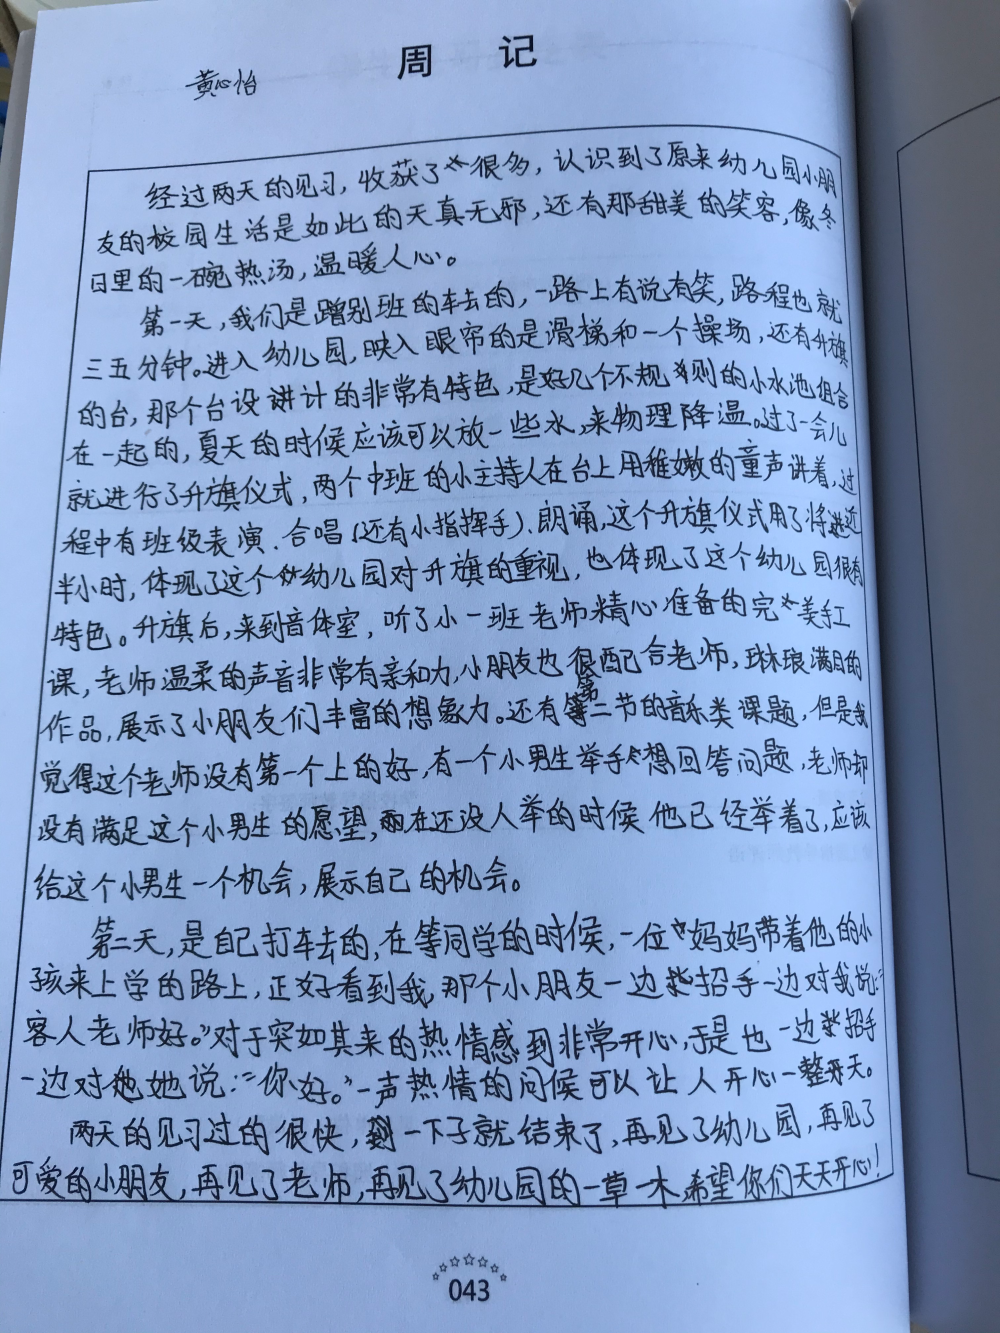 周 记
黄心怡
经过两天的见习,收获了很多,认识到了原来幼儿园小朋
友的校园生活是如此的天真无邪,还有那甜美的笑容,像冬
日里的一碗热汤,温暖人心。
第一天,我们是蹭别班的车去的,一路上有说有笑,路程也就
三五分钟。进入幼儿园,映入眼帘的是滑梯和一个操场,还有升旗
的台,那个台设计的非常有特色,是好几个不规则的小水池组合
在一起的,夏天的时候应该可以放一些水,来物理降温。过了一会儿
就进行了升旗仪式,两个中班的小主持人在台上用稚嫩的童声讲着,过
程中有班级表演、合唱(还有小指挥手)、朗诵,这个升旗仪式用了将近
半小时,体现了这个幼儿园对升旗的重视,也体现了这个幼儿园很有
特色。升旗后,来到音体室,听了小一班老师精心准备的完美手工
课,老师温柔的声音非常有亲和力,小朋友也很配合老师,琳琅满目的
作品,展示了小朋友们丰富的想象力。还有第二节的音乐类课题,但是我
觉得这个老师没有第一个上的好,有一个小男生举手想回答问题,老师却
没有满足这个小男生的愿望,在还没人举的时候他已经举着了,应该
给这个小男生一个机会,展示自己的机会。
第二天,是自己打车去的,在等同学的时候,一位妈妈带着他的小
孩来上学的路上,正好看到我,那个小朋友一边招手一边对我说:“
客人老师好。”对于突如其来的热情感到非常开心,于是也一边招手
一边对她说:“你好。”一声热情的问候可以让人开心一整天。
两天的见习过的很快,一下子就结束了,再见了幼儿园,再见了
可爱的小朋友,再见了老师,再见了幼儿园的一草一木,希望你们天天开心!
043